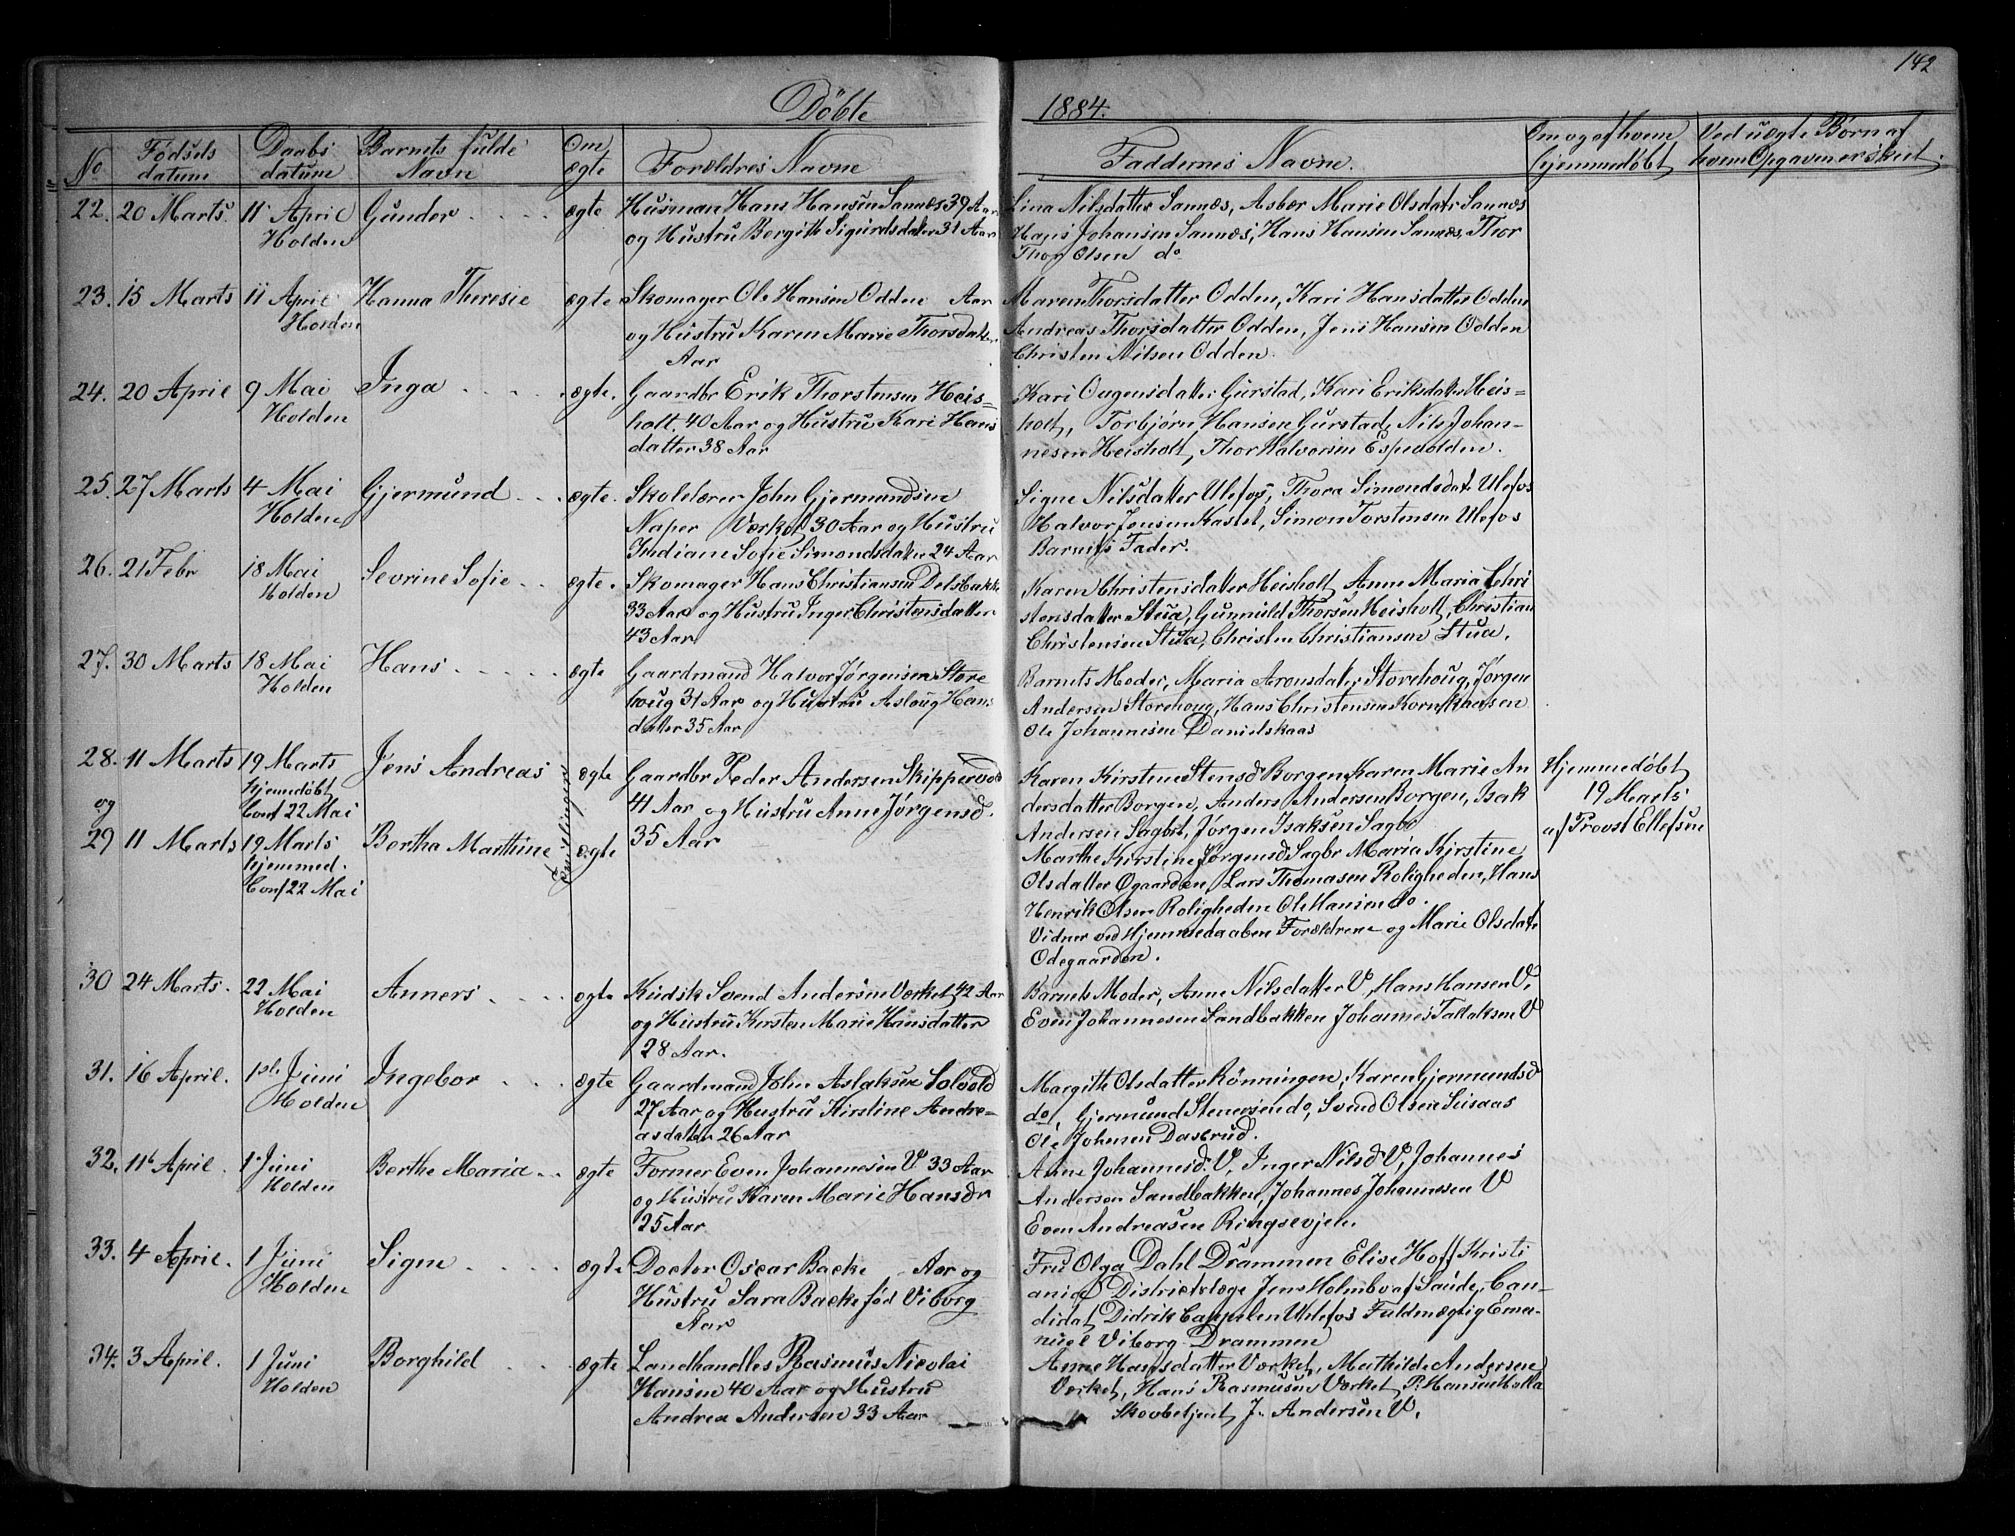 142
Döbte 1884.
No Fødsels datum Daabs datum Barnets fulde Navn Om ægte Forældres Navne Faddernes Navne. Om og af hvem hjemmedøbt Ved uægte Børn af hvem Opgaven er skeet.
22. 20 Marts. 11 April Gunder ægte Husman Hans Hansen Sannes 39 Aar Lina Nilsdatter Sannæs, Asbør Marie Olsdatr Sannæs
Holden og Hustru Bergithe Sigurdsdatter 31 Aar Hans Johansen Sannæs, Hans Hansen Sannæs, Thor
Thor Olsen do
23. 15 Marts 11 April Hanna Theresie ægte Skomager Ole Hansen Odden Aar Maren Thorsdatter Odden, Kari Hansdatter Odden
Holden og Hustru Karen Marie Thorsdatter Andreas Thorsdatter Odden, Jens Hansen Odden
Aar Christen Nilsen Odden.
24. 20 April 9 Mai Inga ægte. Gaardbr Erik Thorstensen Heis= Kari Ougensdatter Gurstad, Kari Eriksdatter Heis=
Holden holt, 40 Aar og Hustru Kari Hans holt, Torbjørn Hansen Gurstad, Nils Johan-
datter 38 Aar nesen Heisholt, Thor Halvorsen Espedalen.
25. 27 Marts 4 Mai Gjermund ægte. Skolelærer John Gjermundsen Signe Nilsdatter Ulefos, Thora Simondsdatr Ulefos
Holden Naper Værket 30 Aar og Hustru Halvor Jensen Kastet, Simon Torstensen Ulefos
Indiane Sofie Simondsdatter 24 Aar Barnets Fader.
26. 21 Febr 18 Mai Sevrine Sofie ægte. Skomager Hans Christiansen Delsbakke Karen Christensdatter Heisholt Anne Maria Chri
Holden 33 Aar og Hustru Inger Christensdatter stensdatter Stua, Gunnuld Thorsen Heisholt, Christian
43 Aar Christensen Stua, Christen Christiansen Stua.
27. 30 Marts 18 Mai Hans ægte Gaardmand Halvor Jørgensen Store Barnets Moder, Maria Aronsdatr Storehoug, Jørgen
Holden houg 31 Aar og Hustru Asloug Hans Andersen Storehoug, Hans Christensen
datter 35 Aar Ole Johannesen Danielskaas
28. 11 Marts 19 Marts Jens Andreas ægte Gaardbr Peder Andersen Skippervold Karen Kirstine Stensd Borgen, Karen Marie An Hjemmedøbt
hjemmedøbt 41 Aar og Hustru Anne Jørgensd. dersdatter Borgen, Anders Andersen Borgen, Isak 19 Marts
og Conf 22 Mai Tvillinger 35 Aar Andersen Sagbr, Jørgen Isaksen Sagbr af Provst Ellefsen
29 11 Marts 19 Marts Bertha Marthine ægte Marthe Kirstine Jørgensd Sagbr Maria Kirstine
hjemmed. Olsdatter Øgaarden, Lars Thomasen Roligheden, Hans
Conf 22 Mai Henrik Olsen Roligheden Ole Hansen do.
Vidner ved Hjemmedaaben Forældrene og Marie Olsdatr
Ødegaarden.
30 24 Marts. 22 Mai Anners ægte Kudsk Svend Andersen Værket 42 Aar Barnets Moder, Anne Nilsdatter V, Hans Hansen V,
Holden og Hustru Kirsten Marie Hansdatter Even Johannesen Sandbakken Johannes Tallaksen V
28 Aar.
31. 16 April. 1ste Juni Ingebor ægte Gaardmand John Aslaksen Solvold Margithe Olsdatter Rönningen, Karen Gjermundsd
Holden 27 Aar og Hustru Kirstine Andre= do, Gjermund Stenersen do, Svend Olsen Susaas
asdatter 26 Aar Ole Johnsen Dastrud.
32. 11 April. 1 Juni Berthe Maria ægte Former Even Johannesen V 33 Aar Anne Johannesd. V, Inger Nilsd V, Johannes
Holden og Hustru Karen Marie Hansdr Andersen Sandbakken, Johannes Johannesen V
25 Aar Even Andreasen Ringsevjen.
33. 4 April. 1 Juni Signe ægte Doctor Oscar Backe Aar og Fru Olga Dahl Drammen Elise Hoff Kristi
Holden Hustru Sara Backe fød Viborg ania Districtslæge Jens Holmboe af Saude, Can=
Aar didat Didrik Cappelen Ulefos Fuldmægtig Ema-
nuel Viborg Drammen
34. 3 April. 1 Juni Borghild ægte Landhandler Rasmus Nicolai Anne Hansdatter Værket, Mathilde Andersen
Holden Hansen 40 Aar og Hustru Værket, Hans Rasmusen Værket, P. Hansen Holla
Andrea Andersen 33 Aar Skovbetjent J. Andersen V.